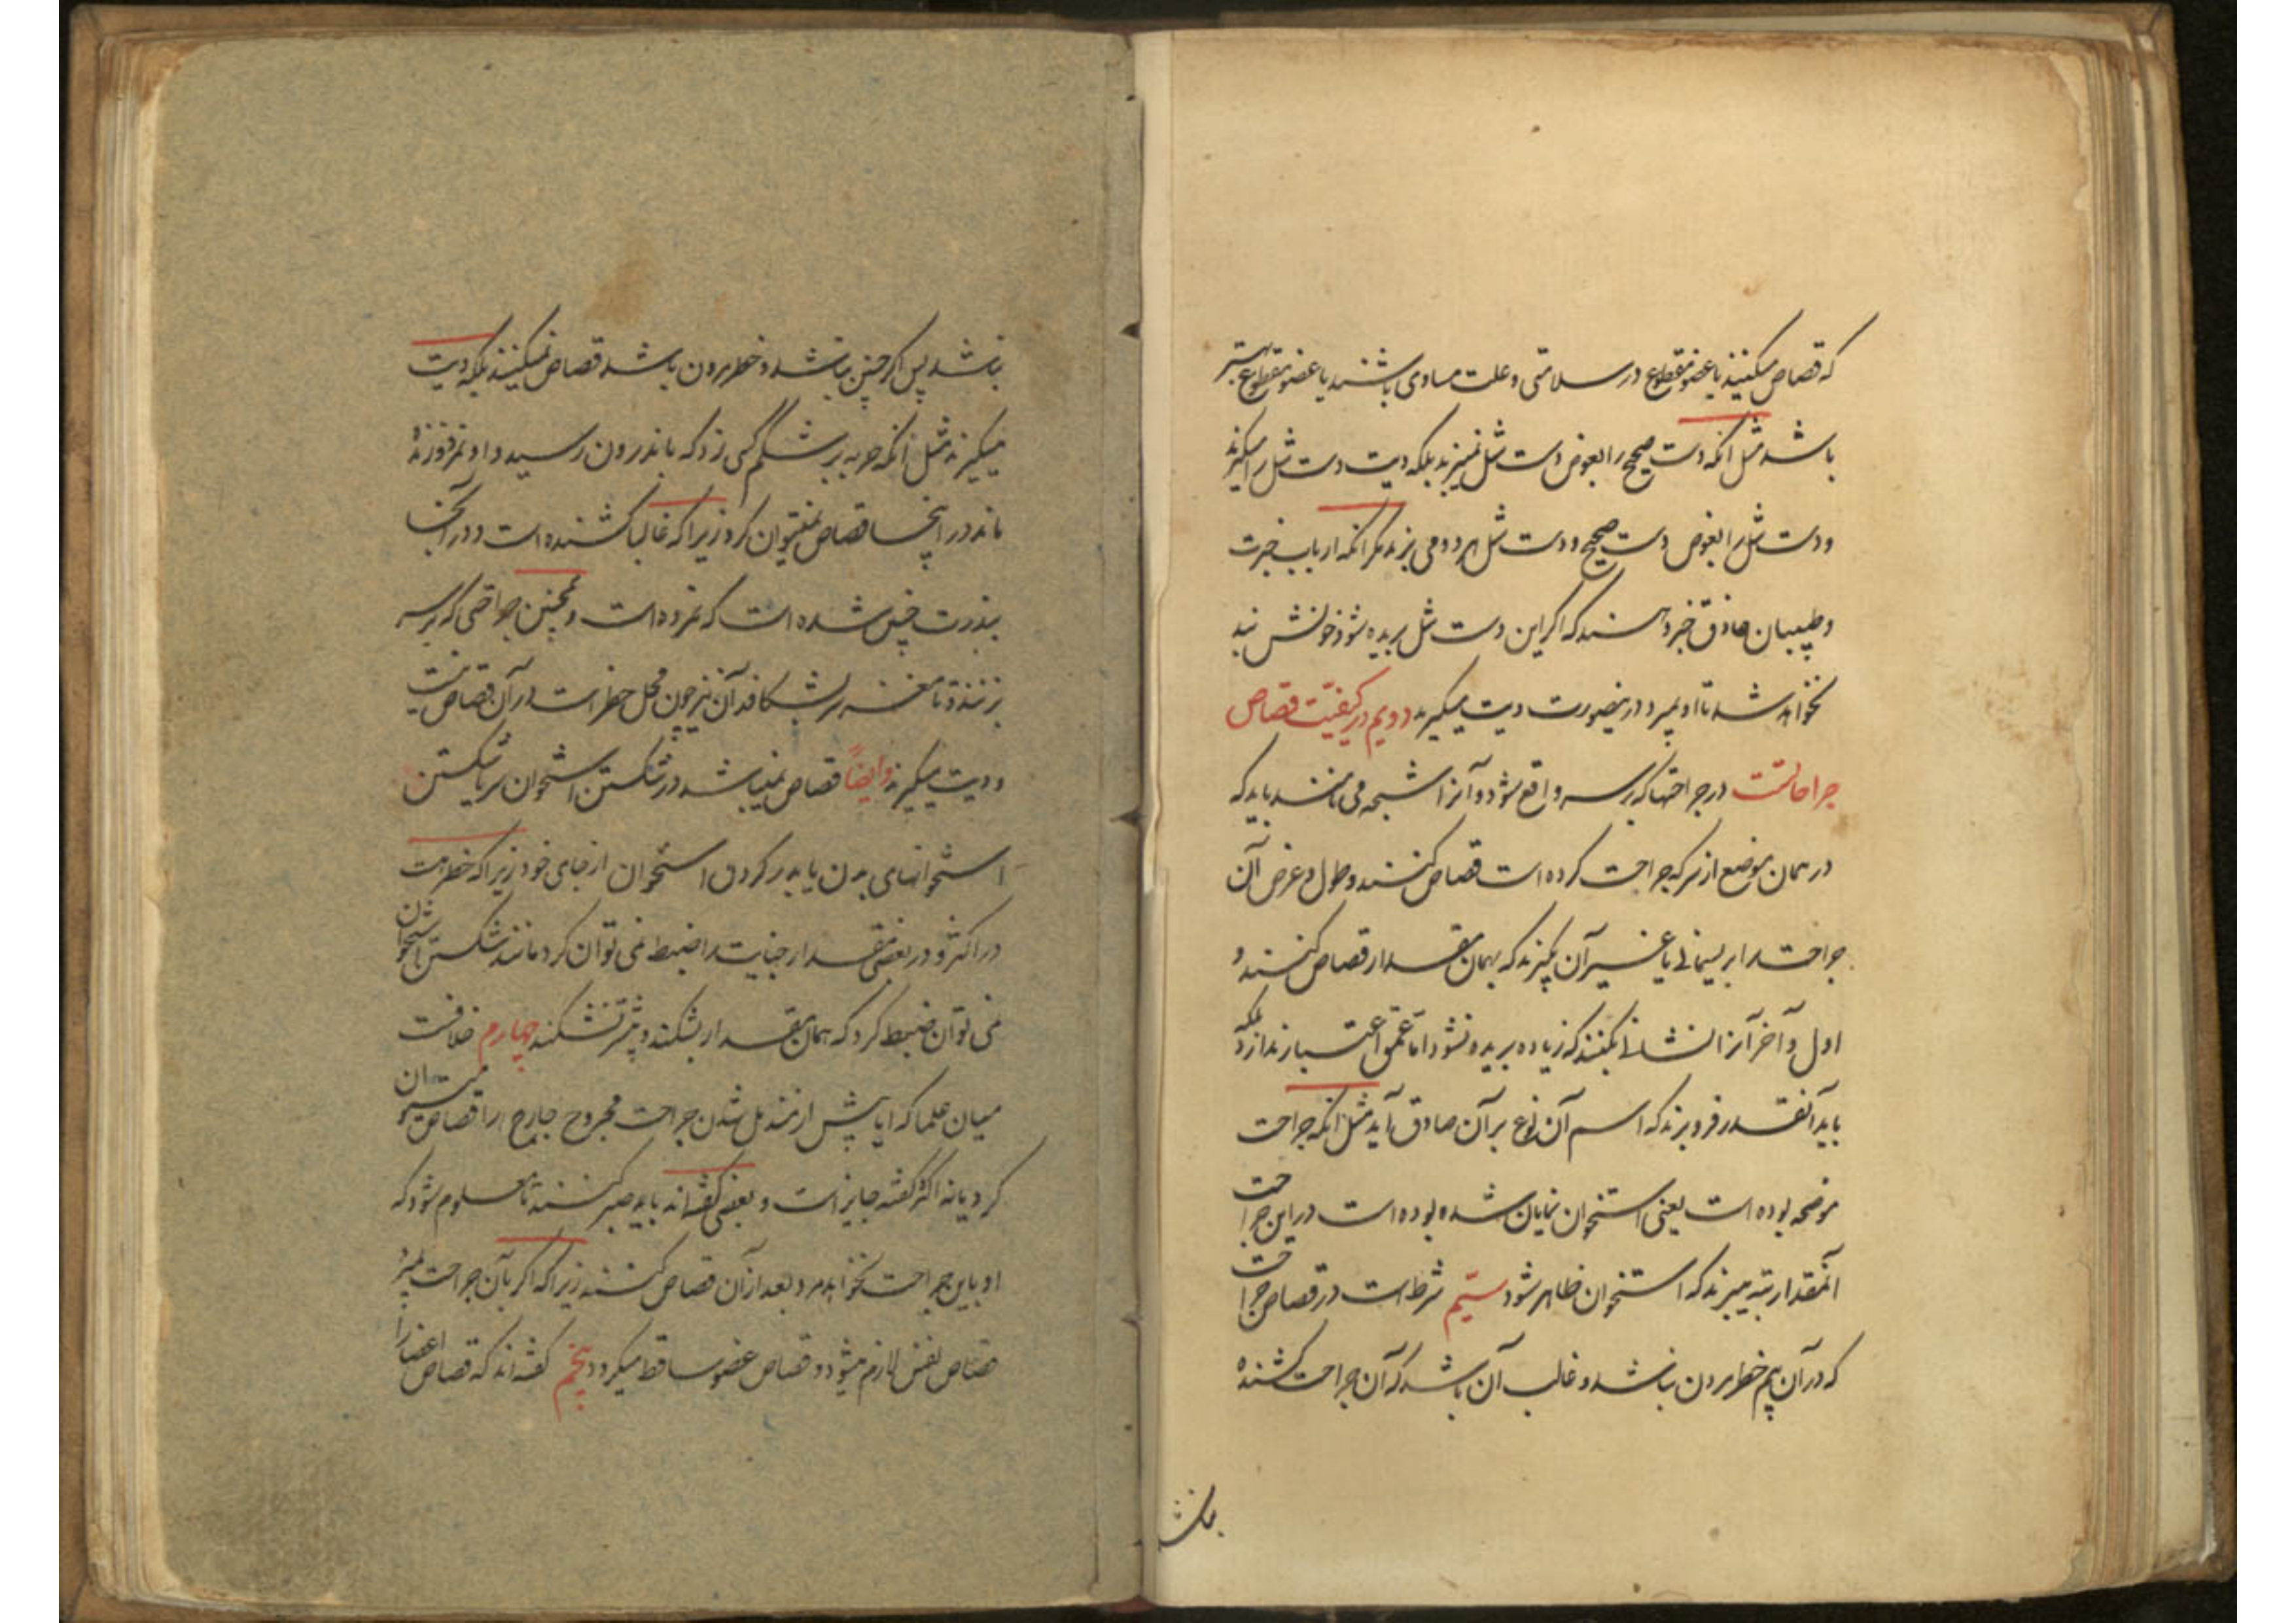 که قصاص میکنند با عضو مقطوع در سلامتی و علت مساوی باشند یا عضو مقطوع بهتر
باشد مثل آنکه دست صحیح را بعوض دست شل نمیبرند بلکه دیت دست شل را میگیرند
و دست شل را بعوض دست صحیح و دست شل هر دو می برند مگر آنکه ارباب خبرت
و طبیبان حاذق خبر دهند که اگر این دست شل بریده شود خونش بند
نخواهد شد تا او بمیرد در اینصورت دیت میگیرند دویم در کیفیّت قصاص
جراحاتست در جراحتها که بر سر واقع شود و آنرا شجه می نامند باید که
در همان موضع از سر که جراحت کرده است قصاص کنند و طول و عرض آن
جراحت را بریسمانی یا غیر آن بگیرند که بهمان مقدار قصاص کنند و
اول و آخر آنرا نشانی بکنند که زیاده بریده نشود امّا عمق اعتبار ندارد بلکه
باید آنقدر فرو برند که اسم آن نوع بر آن صادق آید مثل آنکه جراحت
موضحه بوده است یعنی استخوان نمایان شده بوده است در این جراحت
آنمقدار تیغ میبرند که استخوان ظاهر شود سیّم شرطست در قصاص جراحت
که در آن بیم خطر مردن نباشد و غالب آن باشد که آن جراحت کشنده
نباشد
نباشد پس اگر چنین نباشد و خطر مردن باشد قصاص نمیکنند بلکه دیت
میگیرند مثل آنکه حربه بر شکم کسی زد که باندرون رسید و او نمرد و زنده
ماند در اینجا قصاص نمیتوان کرد زیرا که غالبا کشنده است و در آنجا
بندرت چنین شده است که نمرده است و همچنین جراحتی که بر سر
بزنند و تا مغز سر بشکافد آن نیز چون محل خطر است در آن قصاص نیست
و دیت میگیرند و ایضاً قصاص نمیباشد در شکستن استخوان سر یا شکستن
استخوانهای بدن یا بدر کردن استخوان از جای خود زیرا که خطر هست
در اکثر و در بعضی مقدار جنایت را ضبط نمی توان کرد مانند شکستن استخوان
نمی توان ضبط کرد که همان مقدار بشکند و بیشتر نشکند چهارم خلافست
میان علما که ایا پیش از مندمل شدن جراحت مجروح جارح را قصاص میتوان
کرد یا نه اکثر گفته جایز است و بعضی گفته‌اند باید صبر کنند تا معلوم شود که
او باین جراحت نخواهد مرد بعد از آن قصاص کنند زیرا که اگر بآن جراحت بمیرد
قصاص نفس لازم میشود و قصاص عضو ساقط میگردد پنجم گفته‌اند که قصاص اعضا را